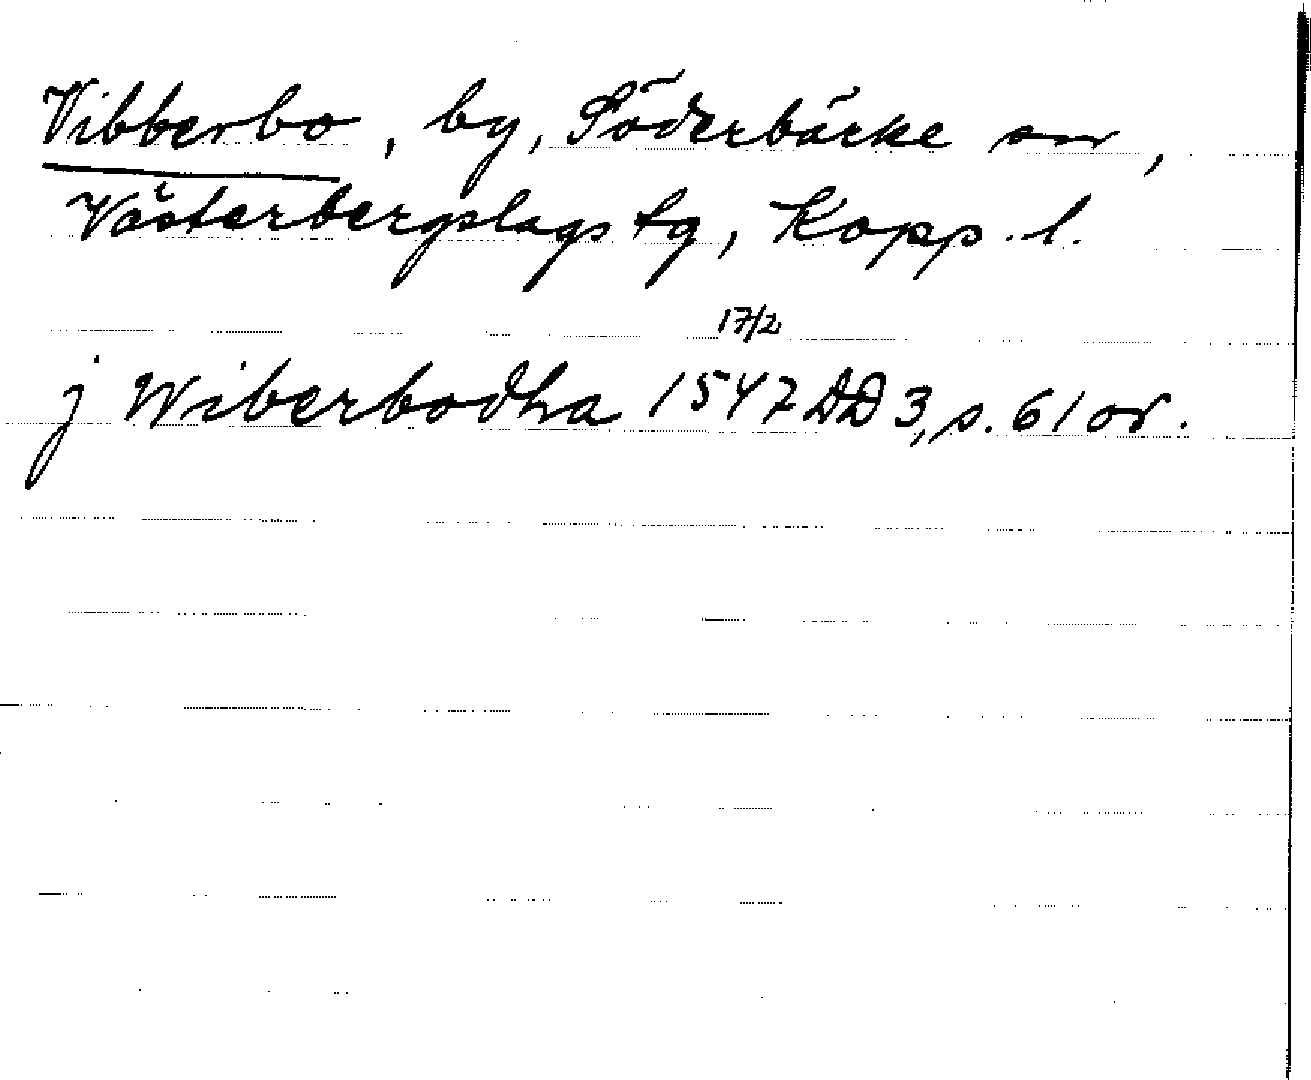 Vibberbo, by, Söderbärke sn,
Västerbergslags tg, Kopp. l.
17/2
j Wiberbodha 1547 DD 3, s. 61 or.